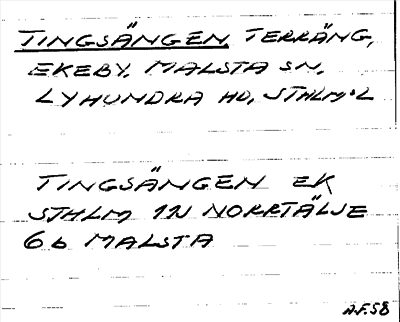 TINGSÄNGEN, TERRÄNG,
EKEBY. MALSTA SN.
LYHUNDRA HD, STHLM.L
TINGSÄNGEN EK
STHLM 11J NORRTÄLJE
6b MALSTA
A.F.58